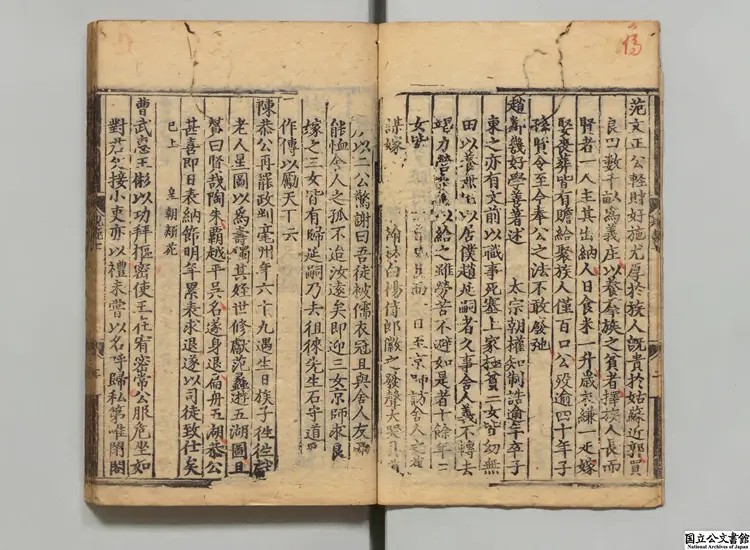 傷
范文正公輕財好施尤厚於族人既貴於姑蘇近郭買
良田數千畝為義庄以養羣族之貧者擇族人長而
賢者一人主其出納人日食米一升歲衣縑一疋嫁
娶喪葬皆有贍給聚族人僅百口公歿逾四十年子
孫賢令至今奉公之法不敢廢弛
趙鄰幾好學善著述 太宗朝權知制誥逾年卒子
東之亦有文前以職事死塞上家極貧三女皆幼無
田以養無宅以居僕趙延嗣者久事舍人義不轉去
竭力營 以給之雖勞苦不避如是者十餘年三
女皆 日至京師訪舍人之
謀嫁 翰林白楊侍郎徽之發聲大哭具
以二公驚謝曰吾徒被儒衣冠且與舍人友
能恤舍人之孤不迨汝遠矣即迎三女京師求良
嫁之三女皆有歸延嗣乃去徂徠先生石守道
作傳以勵天下云
陳恭公再罷政判亳州年六十九遇生日族子徃徃
老人星圖以為壽獨其姪世修獻范蠡遊五湖圖且
贊曰賢哉陶朱霸越平吳名遂身退扁舟五湖恭公
甚喜即日表納節明年累表求退遂以司徒致仕矣
已上 皇朝類苑
曹武惠王彬以功拜樞密使王在宥密常公服危坐如
對君父接小吏亦以禮未嘗以名呼歸私第唯閉閤
国立公文書館
National Archives of Japan